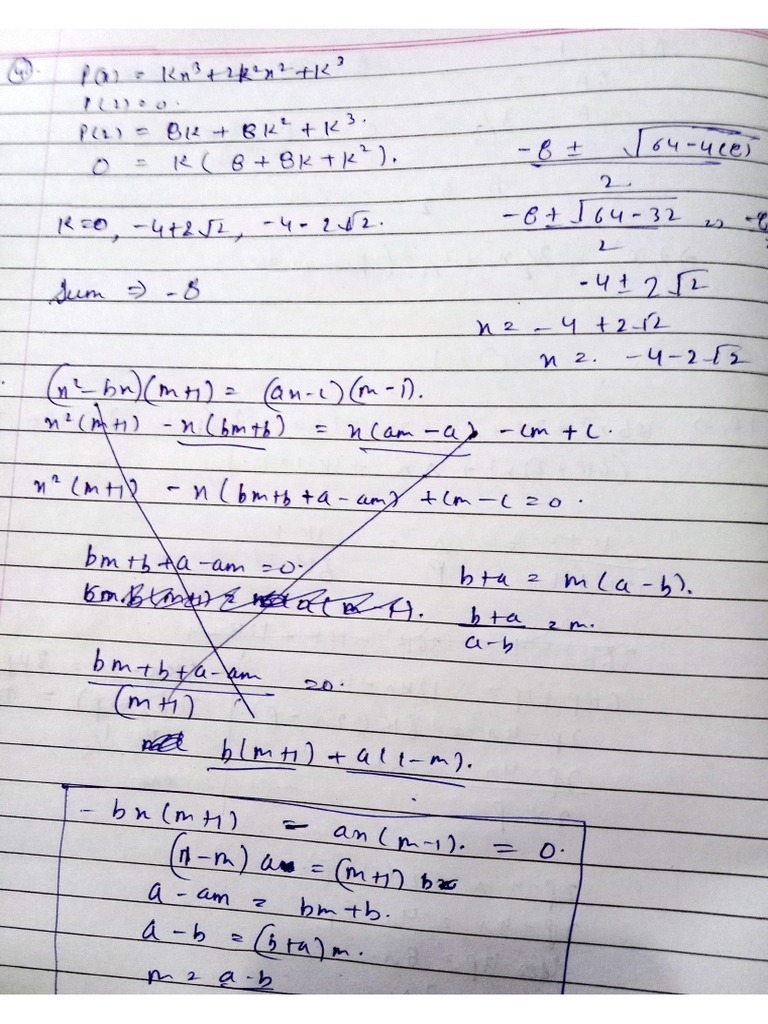 4.
P(x) = Kx³+2k²x²+K³
P(2)=0.
P(2) = 8K + 8K² + K³.
0 = K( 8 + 8K + K²).
K=0, -4+2√2, -4-2√2.
Sum ⇒ -8
-8 ± √64-4(8)
2.
-8 ± √64-32
2
-4 ± 2√2
x = -4+2√2
x = -4-2√2
(x²-bx)(m+1) = (ax-c)(m-1).
x²(m+1) - x(bm+b) = x(am-a) - cm + c.
x²(m+1) - x(bm+b+a-am) + cm - c = 0.
bm+b+a-am=0.
b+a = m(a-b).
b+a = m.
a-b
bm+b+a-am =0.
(m+1)
b(m+1) + a(1-m).
- bx(m+1) - ax(m-1). = 0.
(1-m) a = (m+1) b
a - am = bm+b.
a - b = (b+a)m.
m = a-b